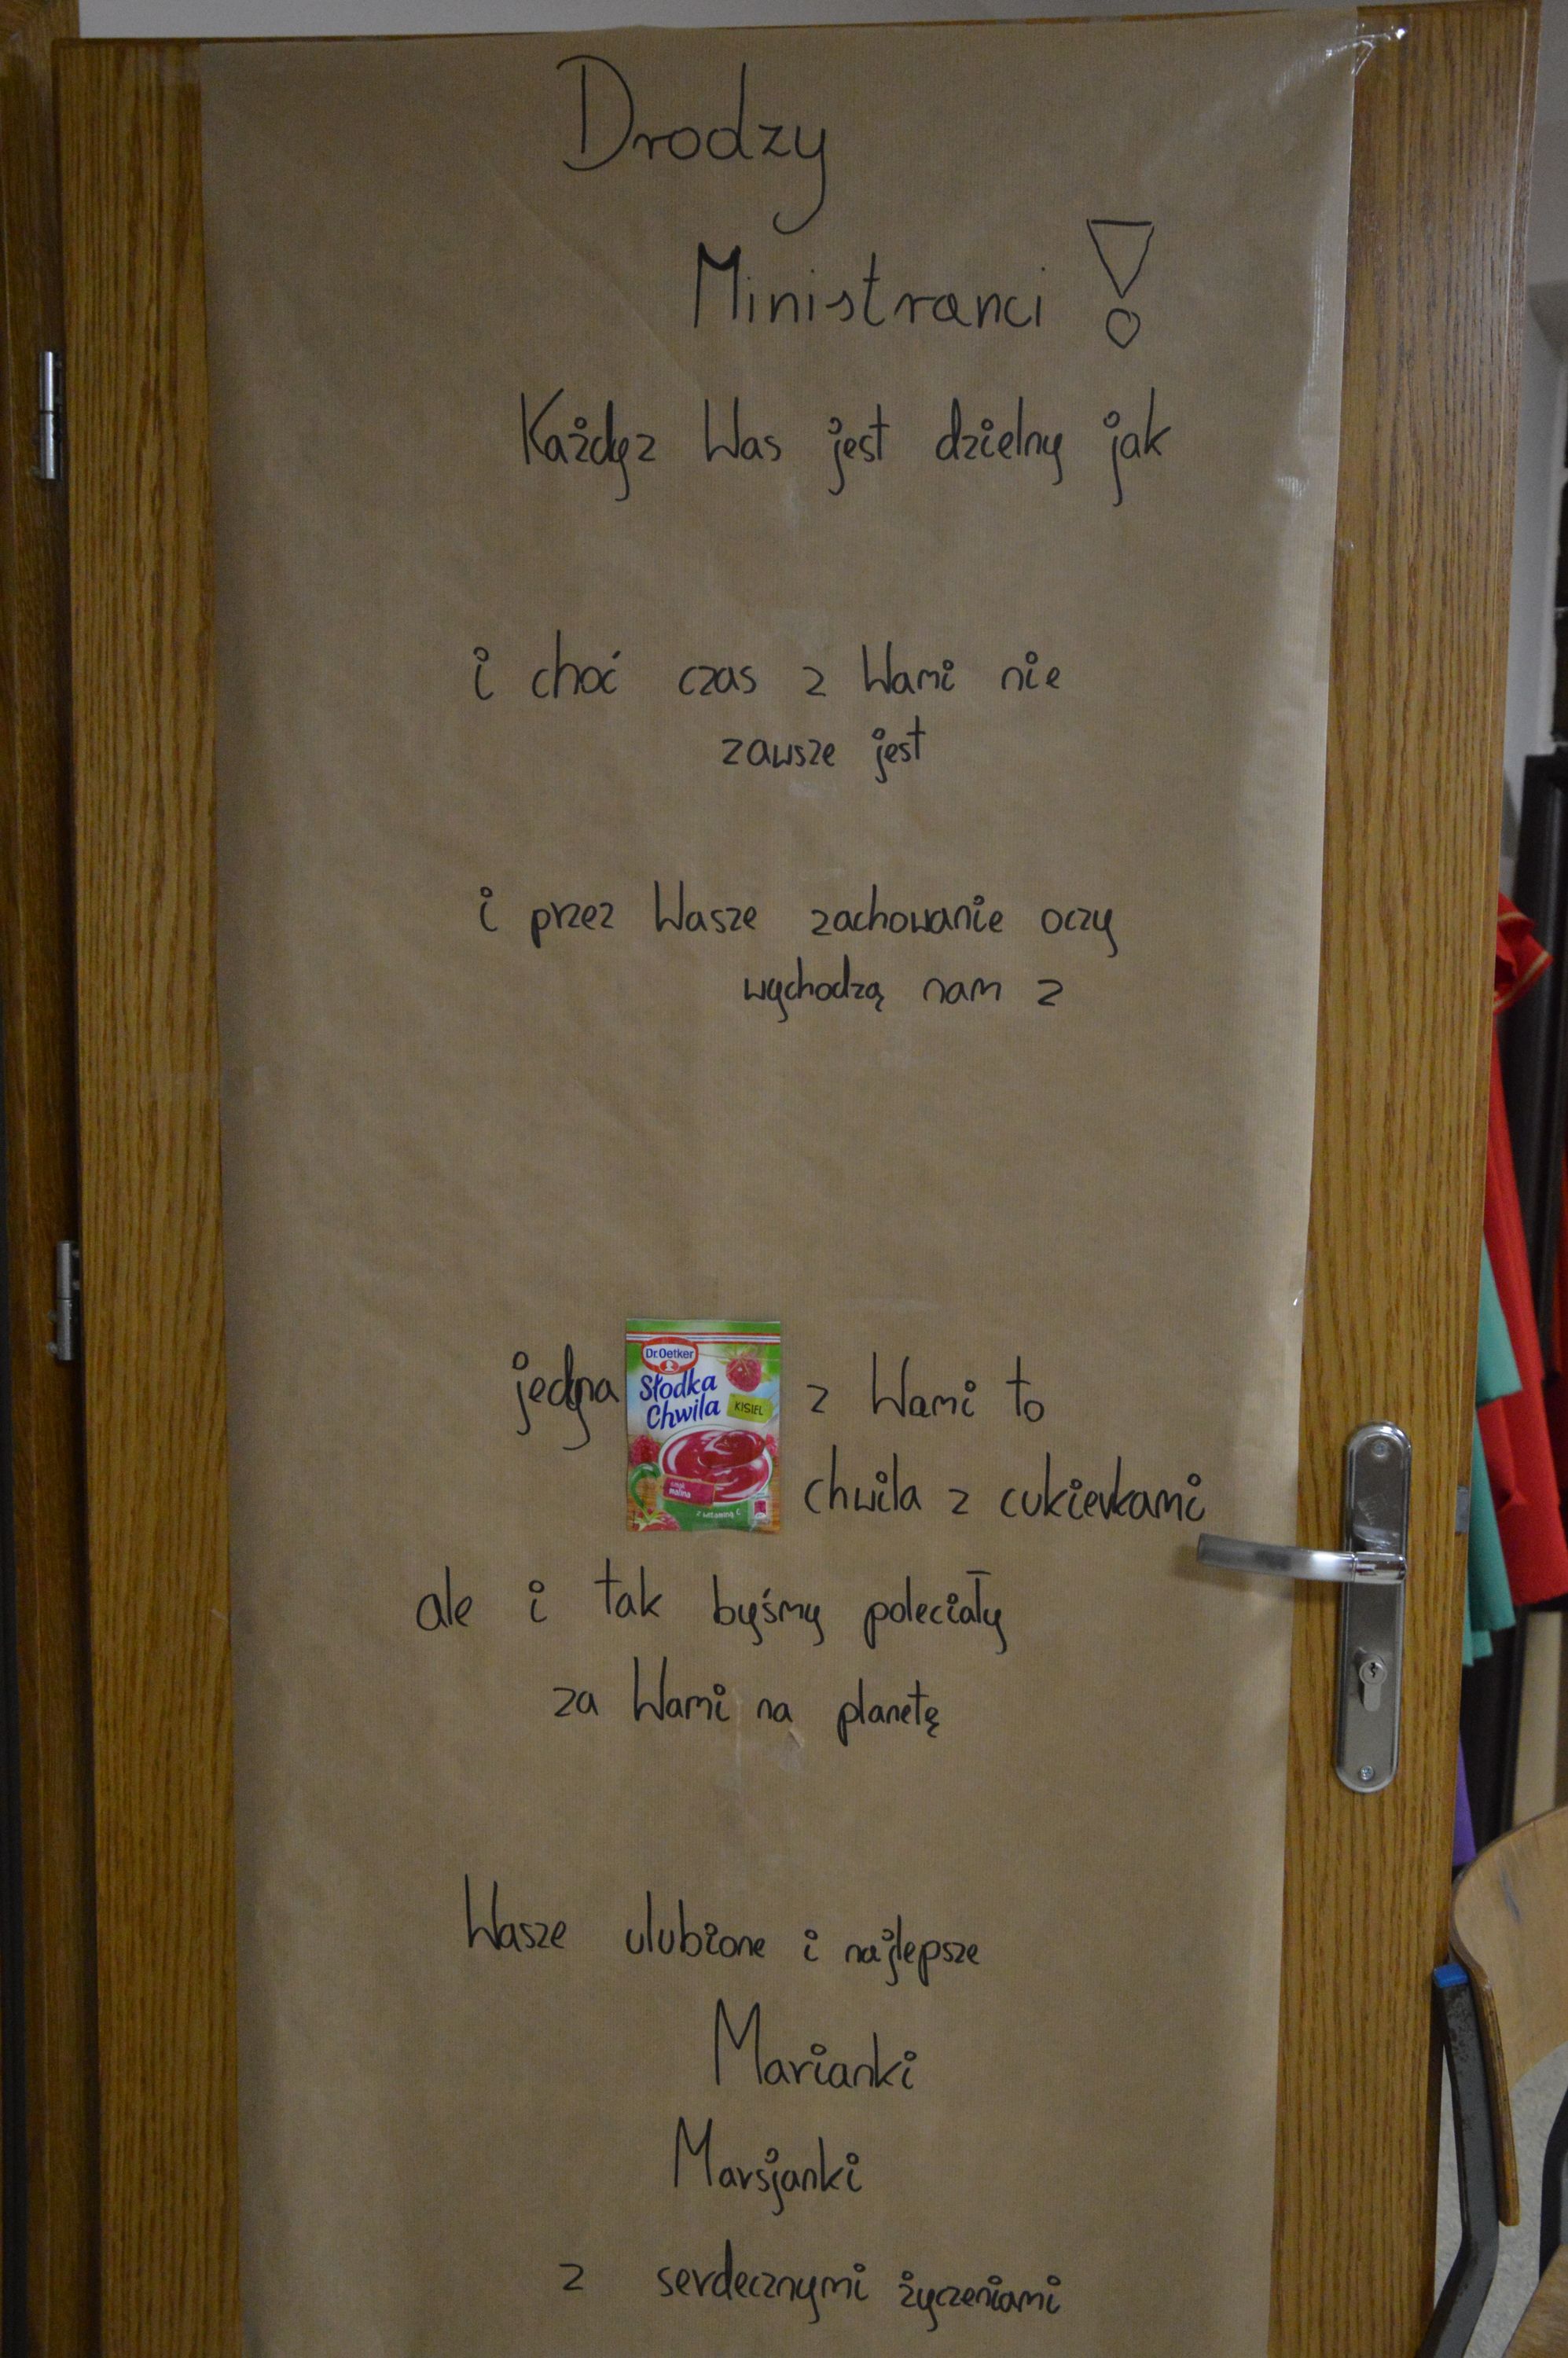 Drodzy
Ministranci!
Każdy z Was jest dzielny jak
i choć czas z Wami nie
zawsze jest
i przez Wasze zachowanie oczy
wychodzą nam z
jedyna
Dr.Oetker
Słodka
Chwila
KISIEL
smak
malina
z witaminą C
z Wami to
chwila z cukierkami
ale i tak byśmy poleciały
za Wami na planetę
Wasze ulubione i najlepsze
Marianki
Marsjanki
z serdecznymi życzeniami